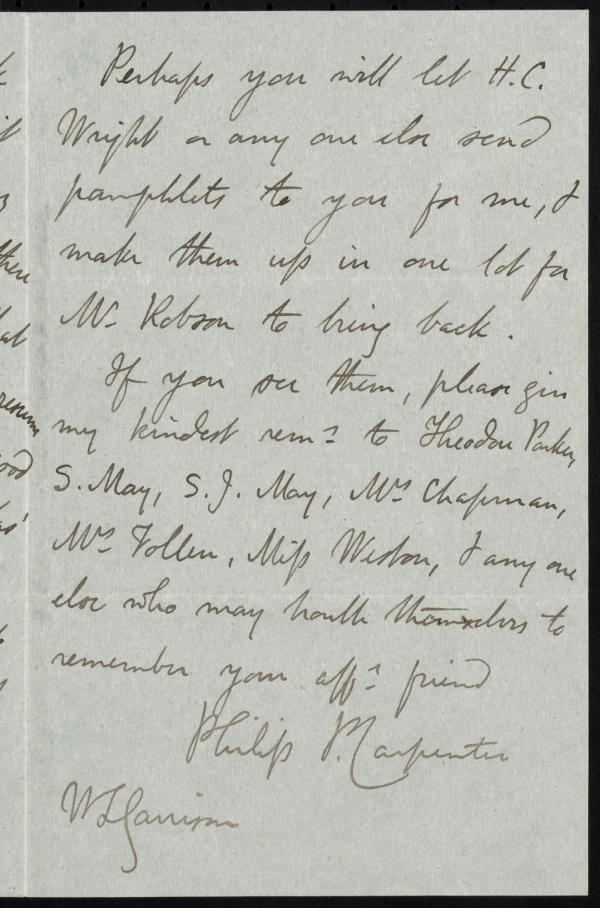 Perhaps you will let H.C.
Wright or any one else send
pamphlets to you for me, &
make them up in one lot for
Mr. Robson to bring back.
If you see them, please give
my kindest remcs to Theodore Parker,
S. May, S. J. May, Mrs Chapman,
Mrs Follen, Miss Weston, & any one
else who may trouble themselves to
remember your afft friend
Philip P. Carpenter
W L Garrison
there
at
ood